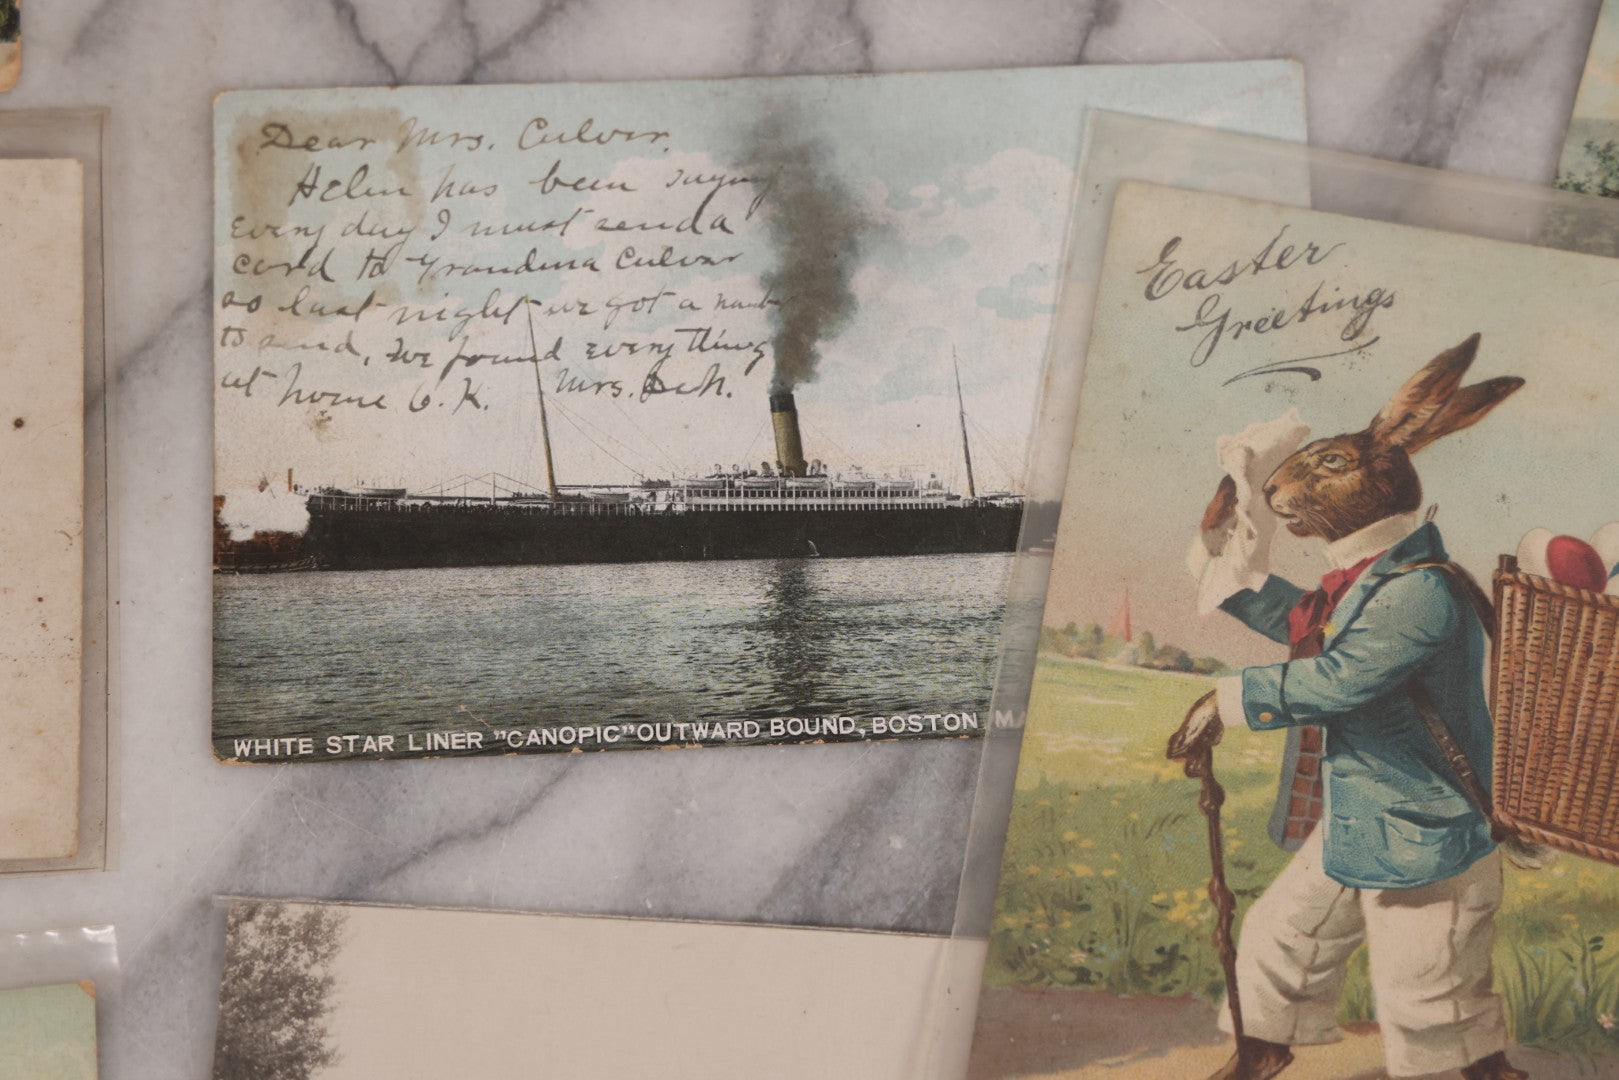 Dear Mrs. Culver.
Helen has been saying
every day I must send a
card to Grandma Culver
so last night we got a
to send, we found everything
at home O.K. Mrs.
WHITE STAR LINER "CANOPIC" OUTWARD BOUND, BOSTON MA
Easter
Greetings